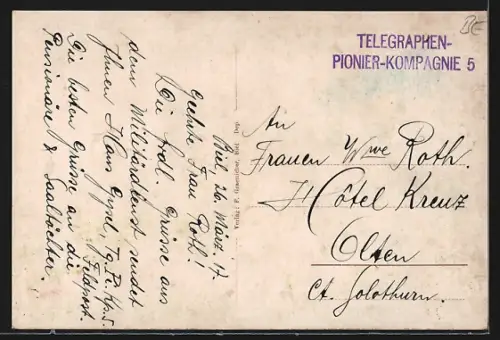 BE
TELEGRAPHEN-
PIONIER-KOMPAGNIE 5
Biel, 26. März. 17.
Geehrte Frau Roth!
Die frdl. Grüsse aus
dem Militärdienst sendet
Ihnen Hans Gysel, Tg. Pi. Kp. 5.
Feldpost.
Die besten Grüsse an die
Pensionäre & Saaltöchter.
Verlag Biel Dep
An
Frauen Wwe Roth.
Hôtel Kreuz
Olten
Ct. Solothurn.